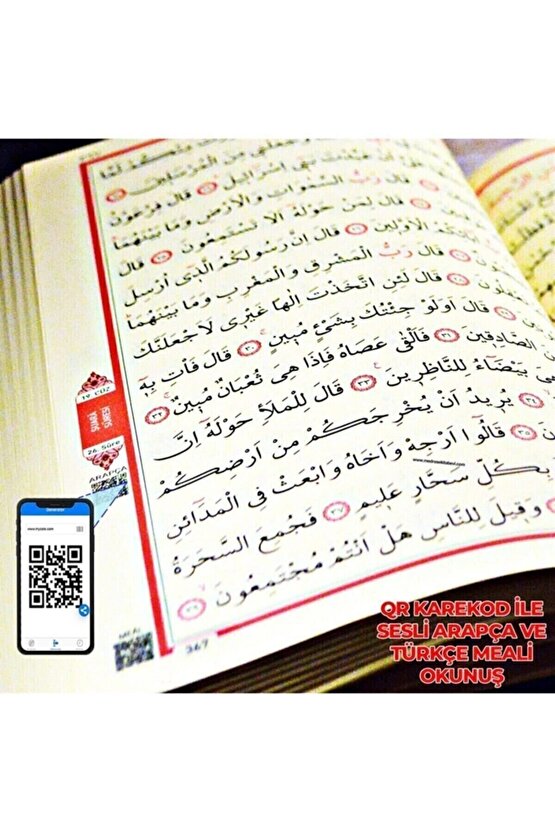 مِنَ الْمُرْسَلِينَ ٢١
عَبَّدْتَ بَنِى اِسْرَائِيلَ ٢٢ قَالَ فِرْعَوْنُ
رَبُّ السَّمٰوَاتِ وَالْاَرْضِ وَمَا بَيْنَهُمَا
قَالَ لِمَنْ حَوْلَهُ اَلَا تَسْتَمِعُونَ ٢٥ قَالَ
اٰبَائِكُمُ الْاَوَّلِينَ ٢٦ قَالَ اِنَّ رَسُولَكُمُ الَّذِى اُرْسِلَ
قَالَ رَبُّ الْمَشْرِقِ وَالْمَغْرِبِ وَمَا بَيْنَهُمَا
قَالَ لَئِنِ اتَّخَذْتَ اِلٰهًا غَيْرِى لَاَجْعَلَنَّكَ
قَالَ اَوَلَوْ جِئْتُكَ بِشَىْءٍ مُبِينٍ ٣٠ قَالَ فَأْتِ بِهِ
الصَّادِقِينَ ٣١ فَاَلْقٰى عَصَاهُ فَاِذَا هِىَ ثُعْبَانٌ مُبِينٌ ٣٢
هِىَ بَيْضَاءُ لِلنَّاظِرِينَ ٣٣ قَالَ لِلْمَلَاِ حَوْلَهُ اِنَّ
٣٤ يُرِيدُ اَنْ يُخْرِجَكُمْ مِنْ اَرْضِكُمْ
٣٥ قَالُوا اَرْجِهْ وَاَخَاهُ وَابْعَثْ فِى الْمَدَائِنِ
بِكُلِّ سَحَّارٍ عَلِيمٍ ٣٧ فَجُمِعَ السَّحَرَةُ
وَقِيلَ لِلنَّاسِ هَلْ اَنْتُمْ مُجْتَمِعُونَ ٣٩
19. CÜZ
ŞUARA
SURESİ
26. Sûre
ARAPÇA
MEAL
367
QR KAREKOD İLE
SESLİ ARAPÇA VE
TÜRKÇE MEALİ
OKUNUŞ